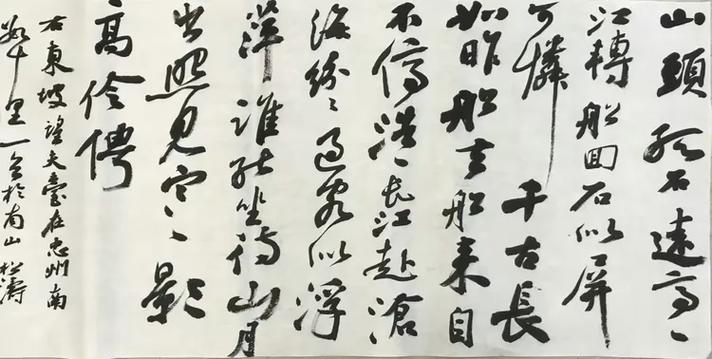 山頭孤石遠亭〻
江轉船回石似屏
可憐千古長
如昨船去船來自
不停浩〻长江赴滄
海紛〻過客似浮
萍誰能坐待山月
出照見寒〻影
高伶俜
右東坡望夫臺在忠州南
數十里 於南山 松濤